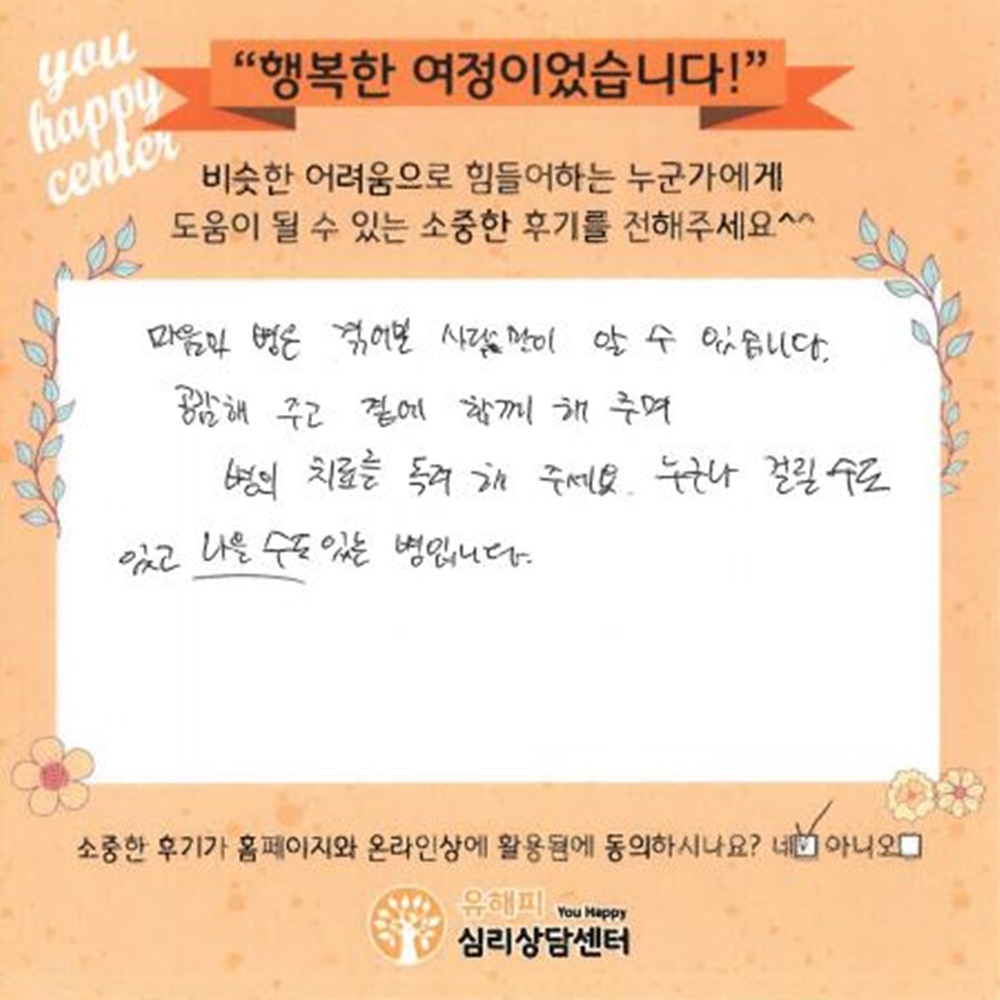 you
happy
center
“행복한 여정이었습니다!”
비슷한 어려움으로 힘들어하는 누군가에게
도움이 될 수 있는 소중한 후기를 전해주세요^^
마음의 병은 겪어본 사람만이 알 수 있습니다.
공감해 주고 곁에 함께 해 주며
병의 치료를 독려 해 주세요. 누구나 걸릴 수도
있고 나을 수도 있는 병입니다.
소중한 후기가 홈페이지와 온라인상에 활용됨에 동의하시나요? 네 아니오
유해피 You Happy
심리상담센터